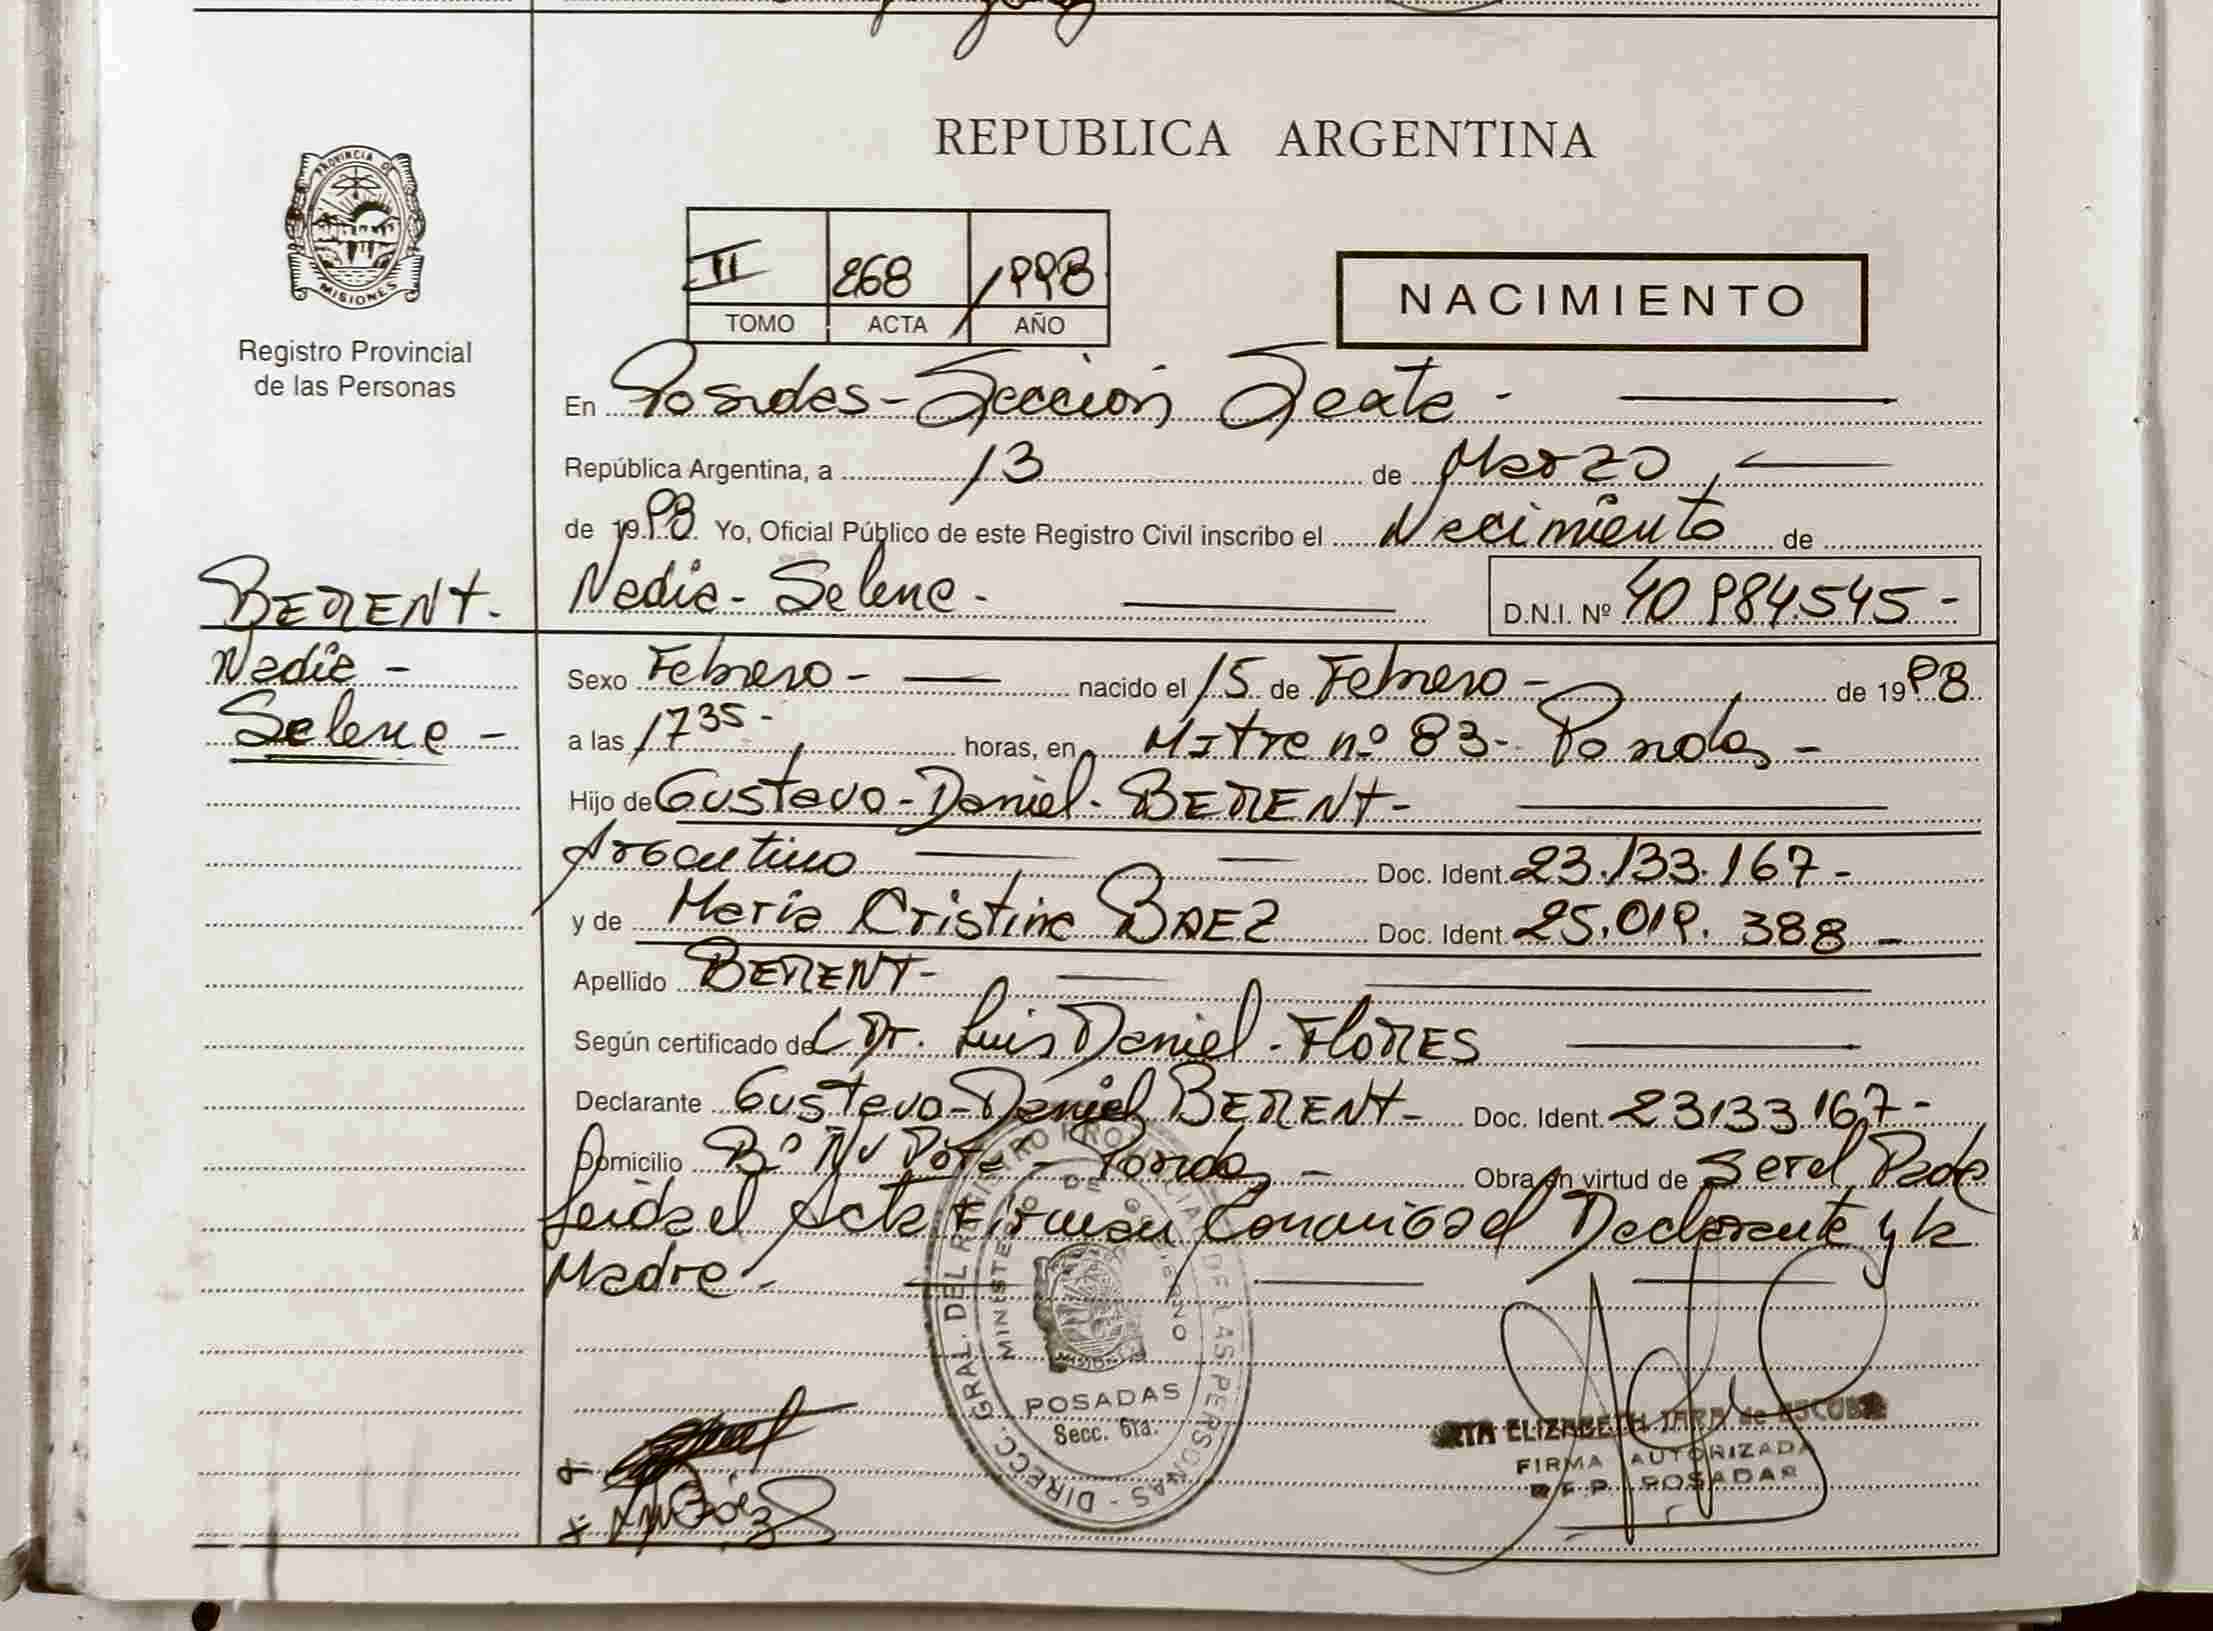 REPUBLICA ARGENTINA
PROVINCIA DE
MISIONES
Registro Provincial
de las Personas
II 268 1998
TOMO ACTA AÑO
NACIMIENTO
En Posadas - Sección Sexta -
República Argentina, a 13 de Marzo
de 1998 Yo, Oficial Público de este Registro Civil inscribo el Nacimiento de
BERENT.
Nadia - Selene -
D.N.I. Nº 40984.545 -
Nadia -
Selene -
Sexo Febrero - nacido el 15 de Febrero - de 1998
a las 1735 - horas, en Mitre nº 83 - Posadas -
Hijo de Gustavo - Daniel - BERENT -
Argentino Doc. Ident. 23.133.167 -
y de Maria Cristina BAEZ Doc. Ident. 25.019.388 -
Apellido BERENT -
Según certificado del Dr. Luis Daniel - FLORES
Declarante Gustavo - Daniel BERENT - Doc. Ident. 23133167 -
Domicilio Bº Posadas - Obra en virtud de Ser el Padre
Leida el Acta Firman Conmigo el Declarante y la
Madre -
DIRECC. GRAL. DEL REGISTRO PROVINCIAL DE LAS PERSONAS -
MINISTERIO DE GOBIERNO
MISIONES
POSADAS
Secc. 6ta.
ELIZABETH de
FIRMA AUTORIZADA
POSADAS